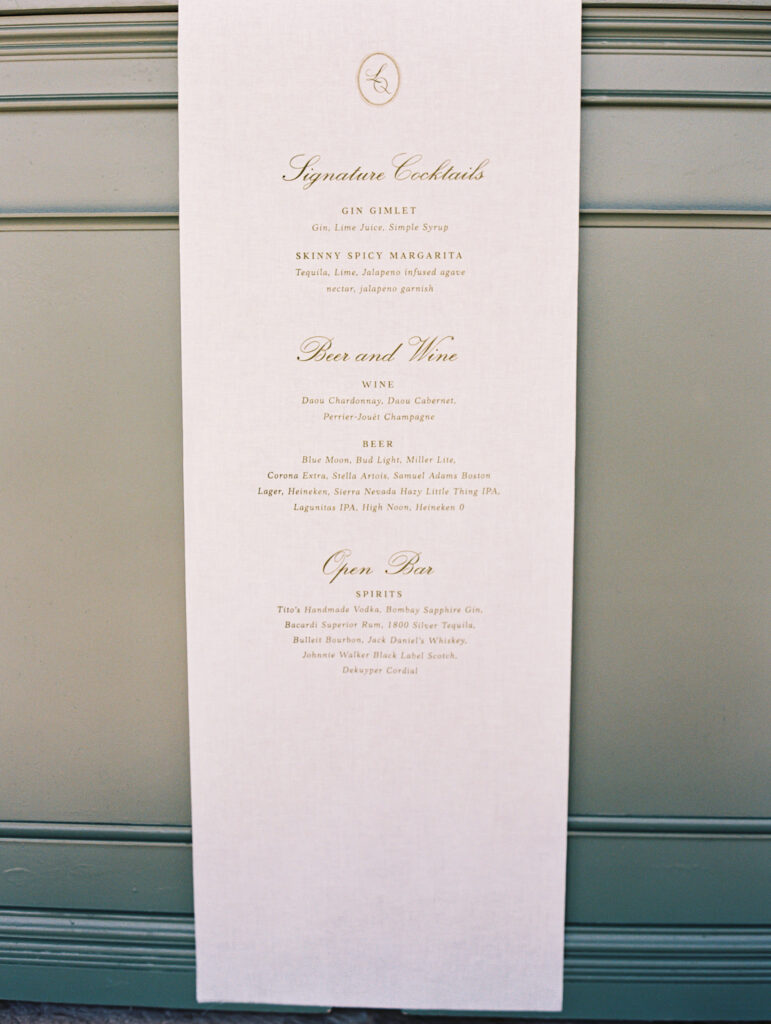 LQ
Signature Cocktails
GIN GIMLET
Gin, Lime Juice, Simple Syrup
SKINNY SPICY MARGARITA
Tequila, Lime, Jalapeno infused agave
nectar, jalapeno garnish
Beer and Wine
WINE
Daou Chardonnay, Daou Cabernet,
Perrier-Jouët Champagne
BEER
Blue Moon, Bud Light, Miller Lite,
Corona Extra, Stella Artois, Samuel Adams Boston
Lager, Heineken, Sierra Nevada Hazy Little Thing IPA,
Lagunitas IPA, High Noon, Heineken 0
Open Bar
SPIRITS
Tito's Handmade Vodka, Bombay Sapphire Gin,
Bacardi Superior Rum, 1800 Silver Tequila,
Bulleit Bourbon, Jack Daniel's Whiskey,
Johnnie Walker Black Label Scotch,
Dekuyper Cordial